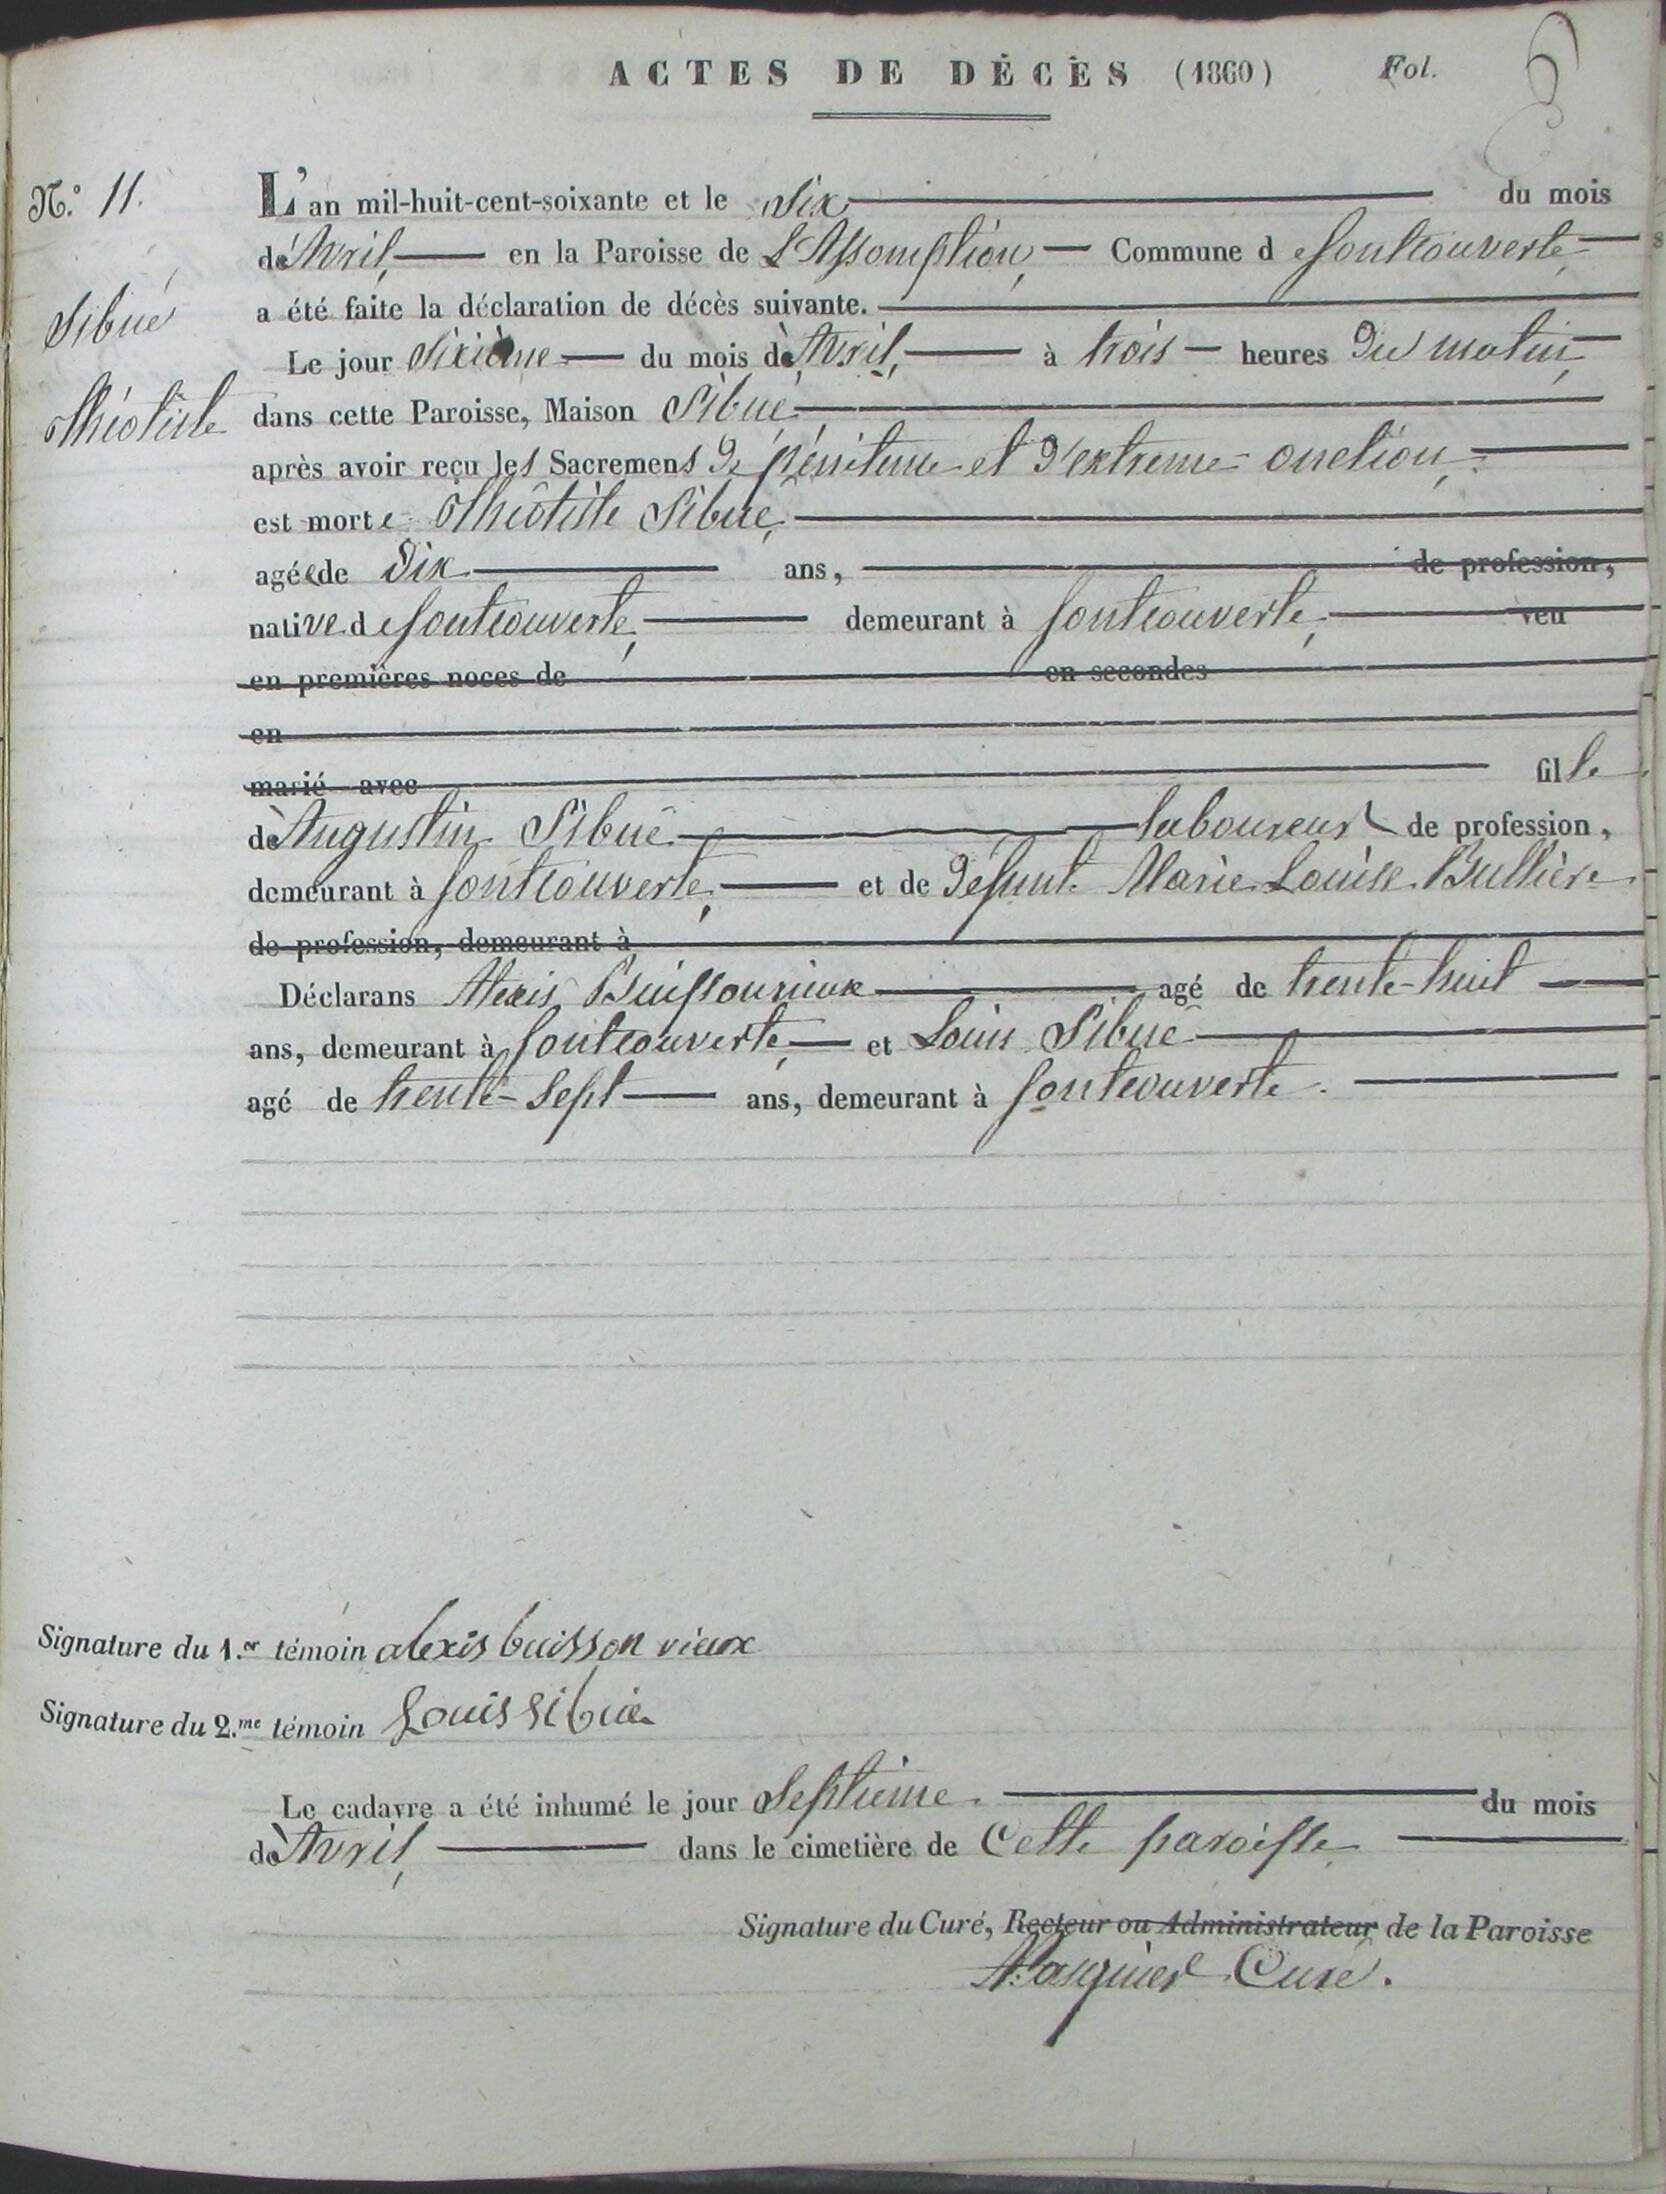 ACTES DE DÉCÈS (1860) Fol. 3
N.º 11. L'an mil-huit-cent-soixante et le Six du mois
d'Avril, en la Paroisse de L'Assomption, Commune de fontcouverte
a été faite la déclaration de décès suivante.
Sibué
Le jour Sixième du mois d'Avril, à trois heures Du matin,
Théotiste
dans cette Paroisse, Maison Sibué,
après avoir reçu les Sacremens De pénitence et D'extreme onction,
est morte Théotiste Sibué,
agée de Dix ans, de profession,
native de fontcouverte, demeurant à fontcouverte, veu
en premières noces de en secondes
en
marié avec fille
d'Augustin Sibué laboureur de profession,
demeurant à fontcouverte, et de Défunte Marie Louise Bullière
de profession, demeurant à
Déclarans Alexis Buissonvieux agé de trente-huit
ans, demeurant à fontcouverte, et Louis Sibué
agé de trente-Sept ans, demeurant à fontcouverte.
Signature du 1.er témoin alexis buisson vieux
Signature du 2.me témoin Louis Sibue
Le cadavre a été inhumé le jour Septième du mois
d'Avril, dans le cimetière de Cette paroisse
Signature du Curé, Recteur ou Administrateur de la Paroisse
Curé.